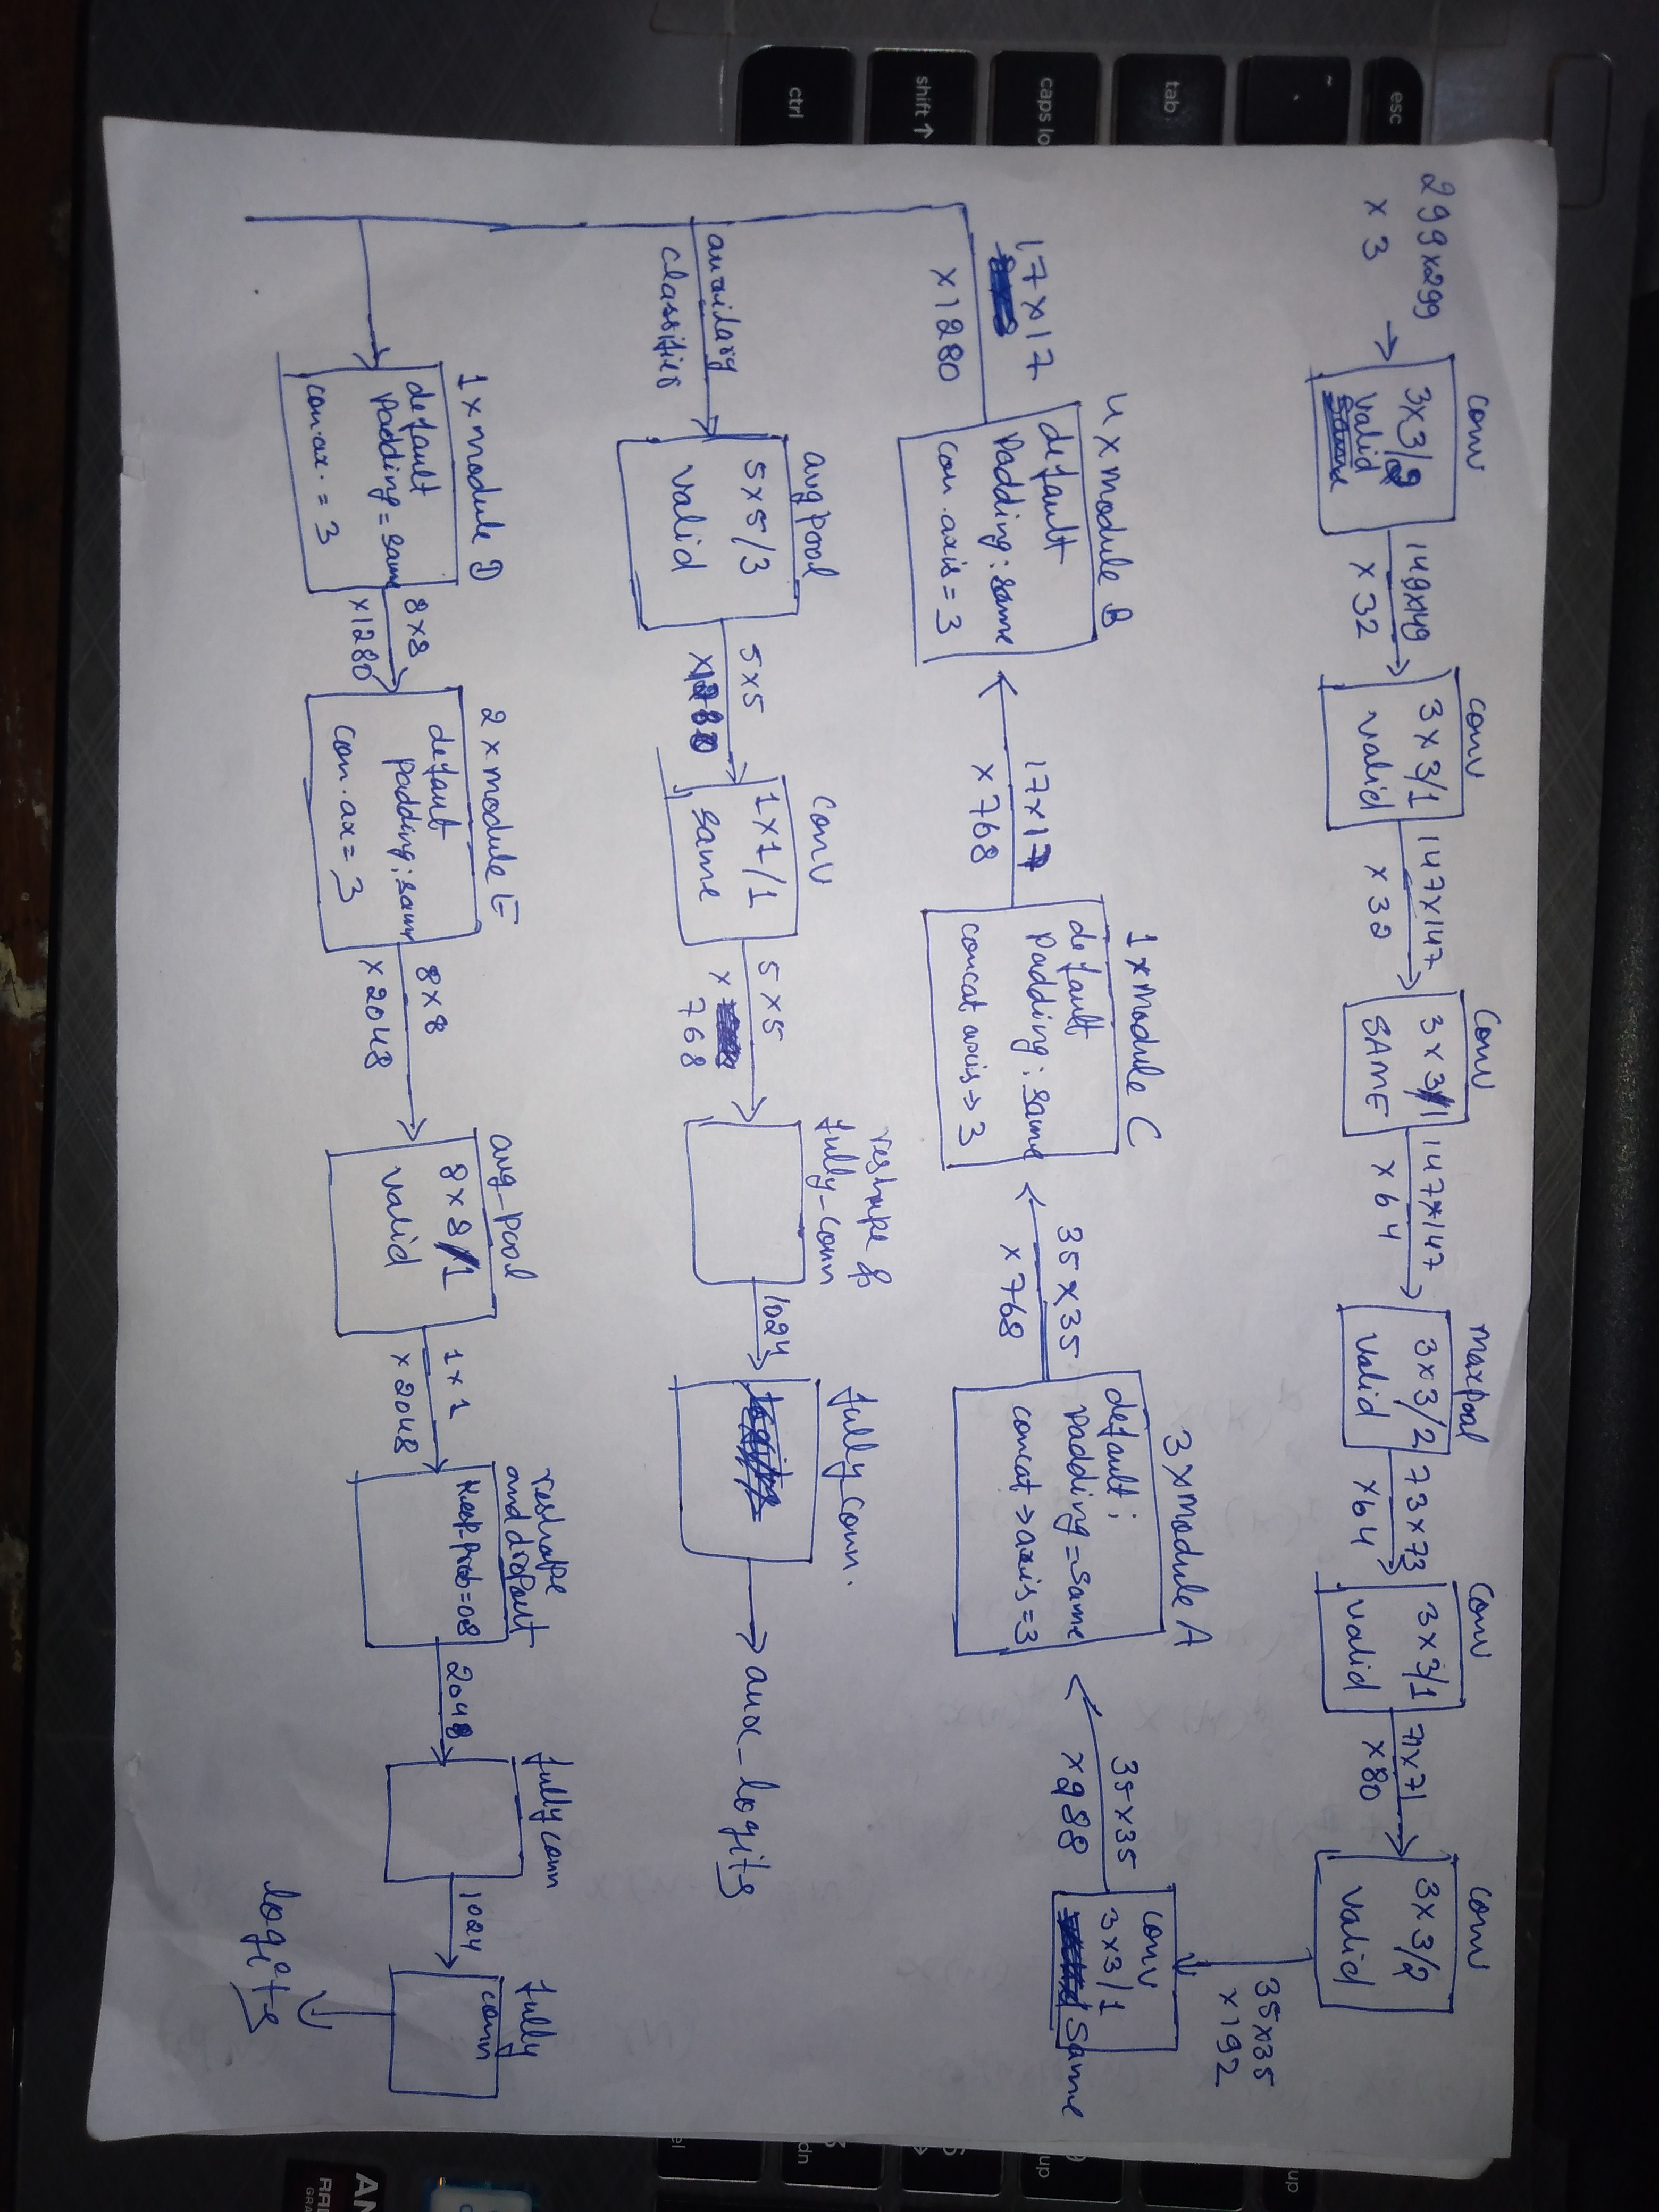 299x299
x 3
conv
3x3/2
valid
149x149
x 32
conv
3x3/1
valid
147x147
x 32
conv
3x3/1
SAME
147x147
x 64
maxpool
3x3/2
valid
73x73
x64
conv
3x3/1
valid
71x71
x 80
conv
3x3/2
valid
35x35
x192
conv
3x3/1
same
35x35
x288
3xmodule A
default:
padding=same
concat→axis=3
35x35
x768
1xmodule C
default
padding:same
concat axis→3
17x17
x768
4xmodule B
default
padding:same
con.axis=3
17x17
x1280
auxilary
classifier
avgpool
5x5/3
valid
5x5
x1280
conv
1x1/1
same
5x5
x
768
reshape &
fully-conn
1024
fully conn.
aux_logits
1xmodule D
default
padding=same
con.ax.=3
8x8
x1280
2xmodule E
defaut
padding:same
con.ax=3
8x8
x2048
avg-pool
8x8/1
valid
1x1
x2048
reshape
and dropout
Keep.prob=08
2048
fully conn
1024
fully
conn
logits
esc
~
`
tab
caps lo
shift ↑
ctrl
up
up
dn